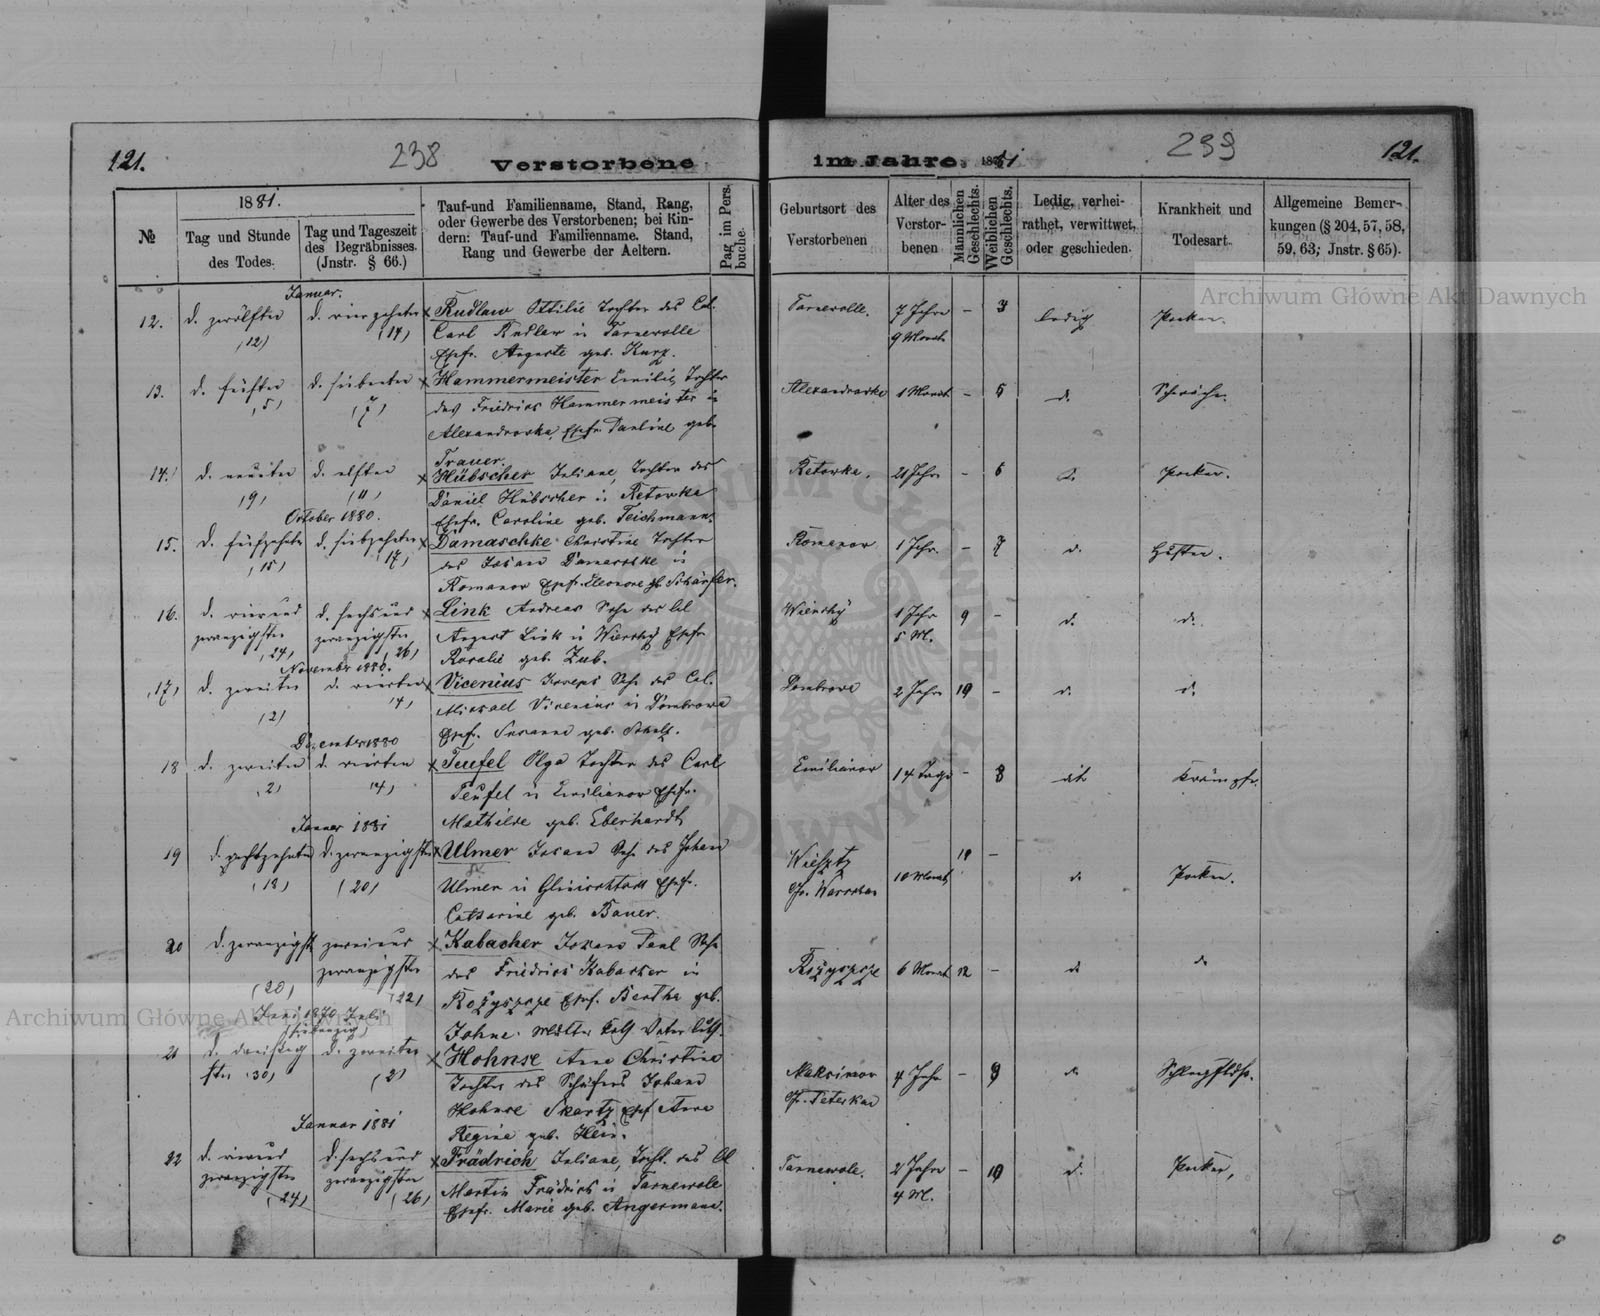 121.
238
Verstorbene
1881.
№
Tag und Stunde
des Todes.
Tag und Tageszeit
des Begräbnisses.
(Jnstr. § 66.)
Tauf-und Familienname, Stand, Rang,
oder Gewerbe des Verstorbenen; bei Kin-
dern: Tauf-und Familienname. Stand,
Rang und Gewerbe der Aeltern.
Pag im Pers.
buche.
im Jahre, 1881
239
121.
Geburtsort des
Verstorbenen
Alter des
Verstor-
benen
Männlichen
Geschlechts.
Weiblichen
Geschlechts.
Ledig, verhei-
rathet, verwittwet,
oder geschieden.
Krankheit und
Todesart.
Allgemeine Bemer-
kungen (§ 204, 57, 58,
59, 63; Jnstr. § 65).
Januar.
12. d. zwölften d. vierzehnten × Rudlaw Ottilie Tochter des Col.
(12) (14) Carl Rudlaw in Tarnewolle
Ehefr. Auguste geb. Kurz.
Tarnewolle. 7 Jahre – 3 ledig Pocken.
9 Monat
13. d. fünften d. siebenten × Hammermeister Emilie, Tochter
(5) (7) des Friedrich Hammermeister in
Alexandrowka, Ehefr. Pauline geb.
Trauer.
Alexandrowka 1 Monat – 5 d. Schwäche.
14. d. neunten d. elften × Hübscher Juliane, Tochter des
(9) (11) Daniel Hübscher in Retowka
Ehefr. Caroline geb. Teichmann.
Retowka. 2 Jahre – 6 d. Pocken.
October 1880.
15. d. fünfzehnten d. siebzehnten × Damaschke Christine Tochter
(15) (17) des Johann Damaschke in
Romanow Ehefr. Eleonore geb. Schärfler.
Romanow 1 Jahr. – 7 d. Husten.
16. d. vierund d. sechsund × Link Andreas Sohn des Col
zwanzigsten zwanzigsten August Link in Wierchy Ehefr
(24) (26) Rosalie geb. Zub.
Wierchy 1 Jahr 9 – d. d.
5 M.
November 1880.
17) d. zweiten d. vierten × Vicenius Joseph Sohn des Col.
(2) (4) Michael Vicenius in Dombrowa
Ehefr. Susanna geb. Scholz.
Dombrowa 2 Jahre 10 – d. d.
December 1880
18 d. zweiten d. vierten × Teufel Olga Tochter des Carl
(2) (4) Teufel in Emilianow Ehefr.
Mathilde geb. Eberhardt
Emilianow 14 Tage – 8 dt Krämpfe.
Januar 1881
19 d. achtzehnten d. zwanzigsten × Ulmer Johann Sohn des Johann
(18) (20) Ulmer in Ehefr.
Catharine geb. Bauer.
10 Monat 11 – d. Pocken.
20 d. zwanzigst zweiund × Kabacher Johann Paul Sohn
zwanzigsten des Friedrich Kabacher in
(20) (22) Rożyszcze Ehefr. Bertha geb.
Johne. Mutter Vater luth.
Rożyszcze 6 Monat 12 – d. d.
Juni 1870 Juli
(siebenzig)
21 d. dreißig d. zweiten × Hohnse Anna Christine
sten (30) (2) Tochter des Schäfers Johann
Hohnse Ehefr Anna
Regine geb. Hein.
Maksimow 4 Jahr – 9 d. Schlagfluß.
Januar 1881
22 d. vierund d. sechsund × Frädrich Juliane, Tocht. des Col
zwanzigsten zwanzigsten Martin Frädrich in Tarnewole
(24) (26) Ehefr. Marie geb. Angermann.
Tarnewole. 2 Jahre – 10 d. Pocken,
4 M.
Archiwum Główne Akt Dawnych
Archiwum Główne Akt Dawnych